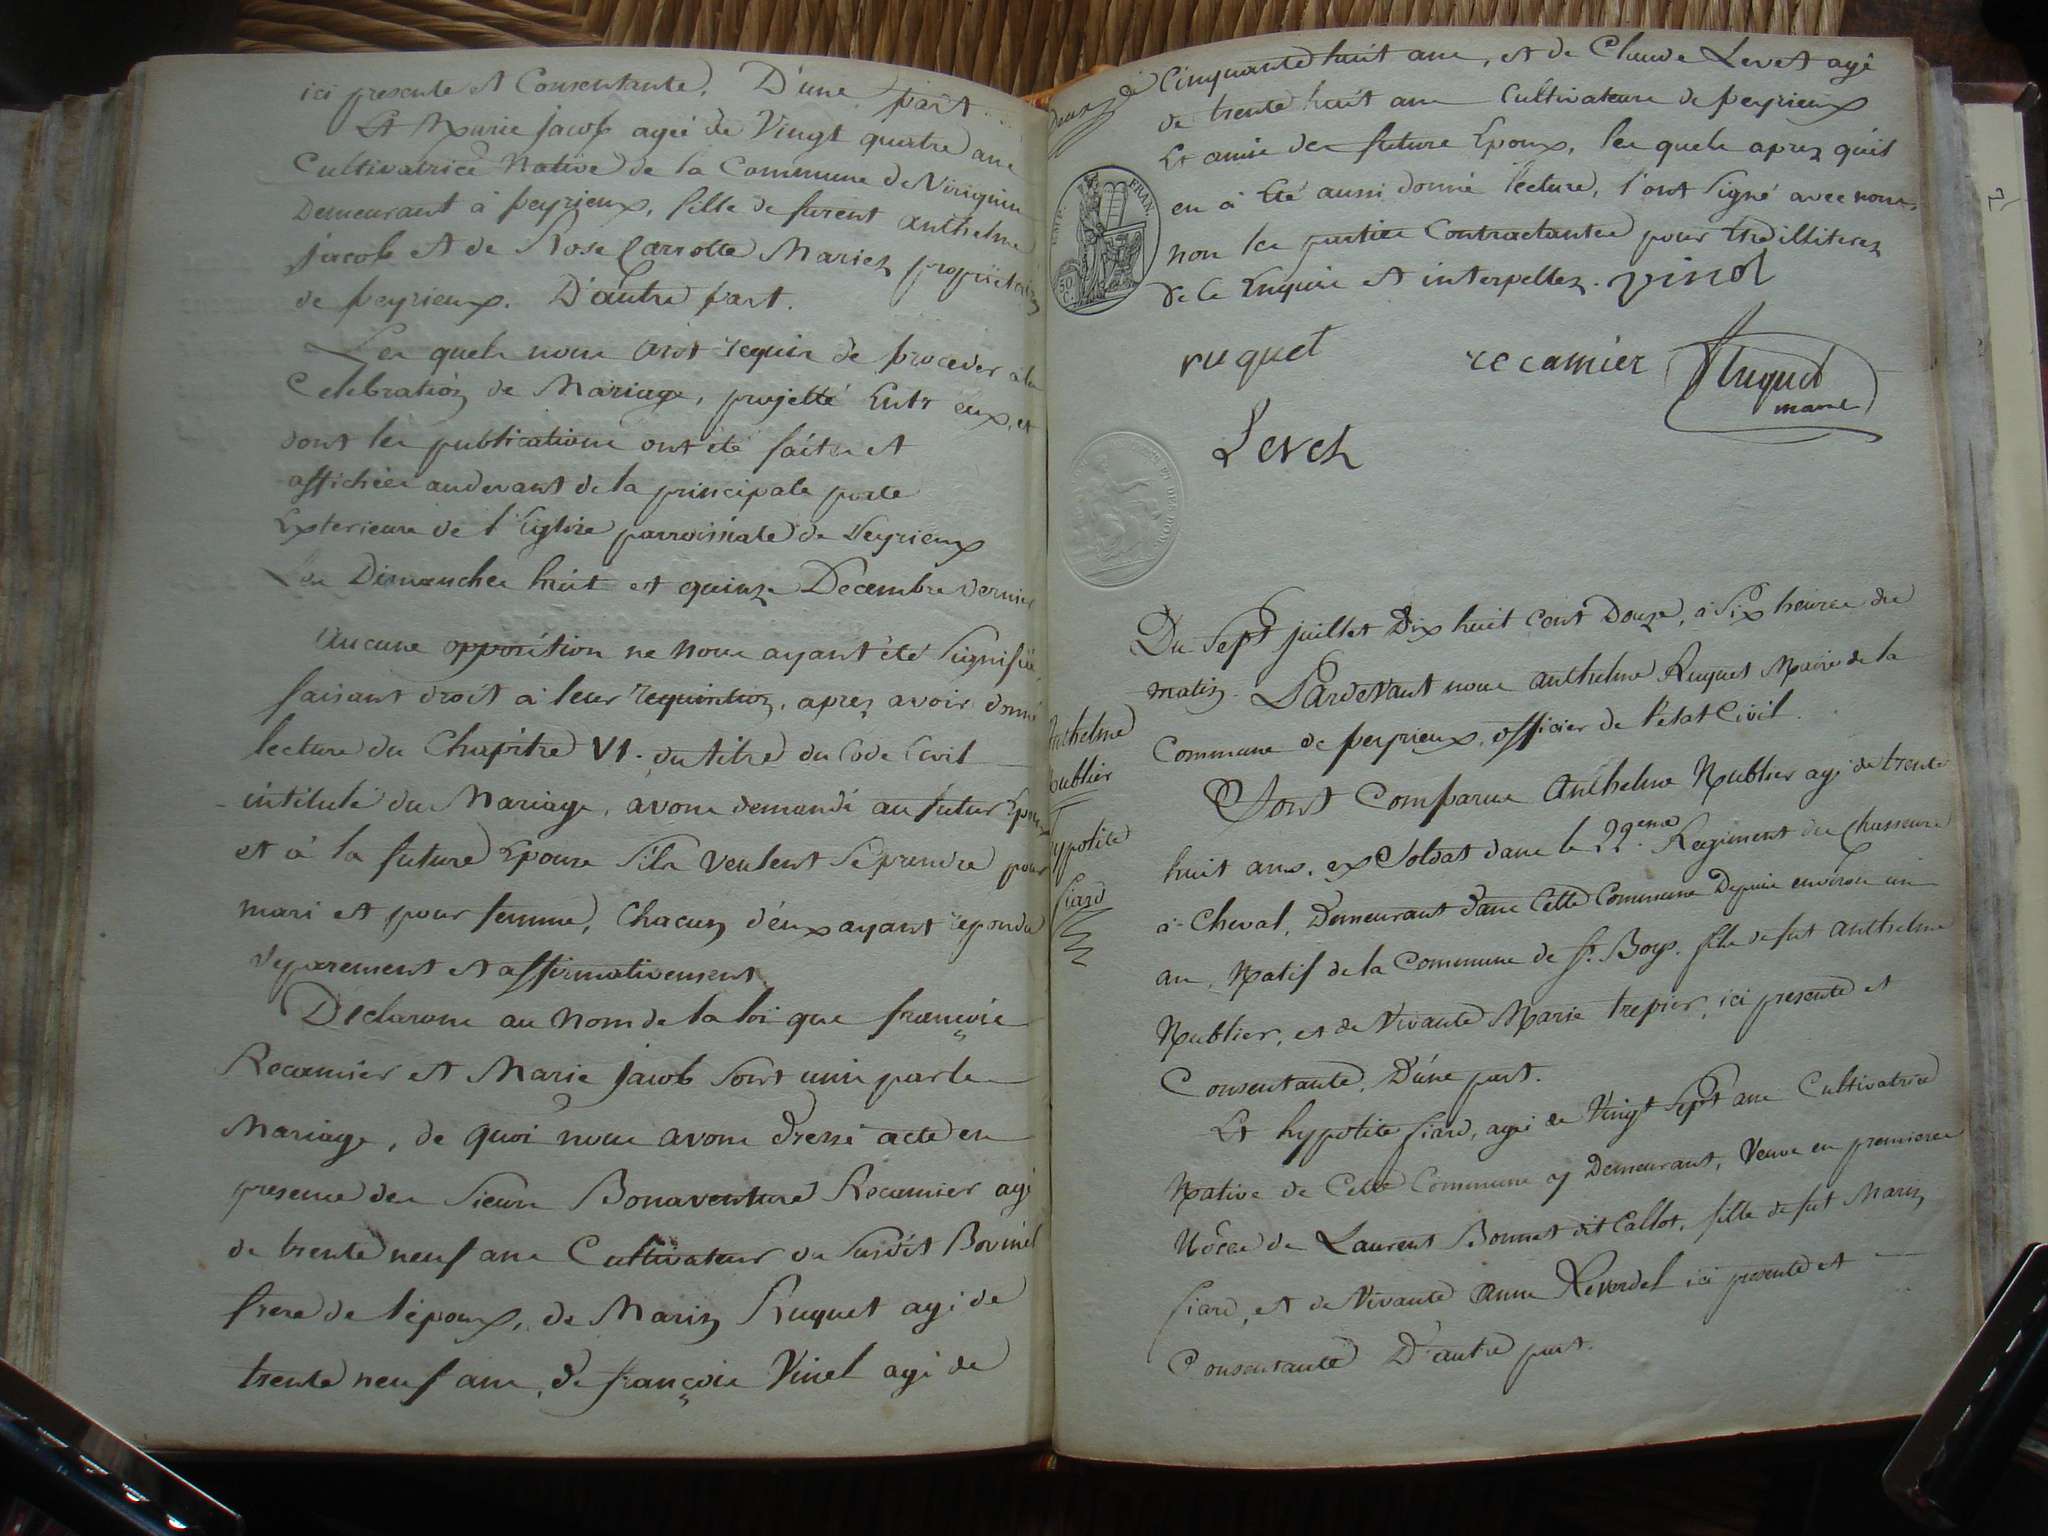 ici presente et Consentante. D'une part
Et Marie jacob agée de Vingt quatre ans
Cultivatrice Native de la Commune de Virignin
Demeurant à peyrieux, fille de furent anthelme
jacob et de Rose Carrotte Mariez propriétaires
de peyrieux. D'autre part.
Les quels nous ont requis de proceder a la
Celebration de Mariage, projetté Entr eux, et
dont les publications ont été faites et
affichées audevant de la principale porte
Exterieure de l'Eglise parroissiale de Peyrieux
Les Dimanches huit et quinze Decembre dernier
Aucune opposition ne nous ayant été Signifiée,
faisant droit à leur requisition, apres avoir donné
lecture du Chapitre VI. du titre du Code Civil
intitulé du Mariage, avons demandé au futur Epoux
et à la future Epouse S'ils veulent Se prendre pour
mari et pour femme, Chacun d'eux ayant repondu
Separement et affirmativement
Declarons au Nom de la loi que françois
Recamier et Marie jacob Sont unis par le
Mariage, de quoi nous avons dressé acte en
presence des Sieurs Bonaventure Recamier agé
de trente neuf ans Cultivateur du Susdit Bovinel
frere de l'époux, de Marin Ruguet agé de
trente neuf ans, de françois Vinel agé de
Cinquante huit ans, et de Claude Levet agé
de trente huit ans Cultivateurs de peyrieux
Et amis des futurs Epoux, les quels apres qu'il
en à Eté aussi donné lecture, l'ont Signé avec nous,
non les parties Contractantes pour Etre illiterez
de ce Enquis et interpellez. vinol
EMP. FRAN.
50 C.
ruguet recamier Ruguet
maire
Levet
Du Sept juillet Dix huit cent Douze, à Six heures du
matin. Pardevant nous anthelme Ruguet Maire de la
Commune de peyrieux, officier de l'etat Civil.
Anthelme
Nublier
hypolite
fiard
Sont Comparus Anthelme Nublier agé de trente
huit ans, ex Soldat dans le 22eme Regiment des Chasseurs
à Cheval, Demeurant dans Cette Commune Depuis environ un
an, Natif de la Commune de St. Boys. fils de fut anthelme
Nublier, et de Vivante Marie trepier, ici presente et
Consentante, D'une part.
Et hypolite fiard, agée de Vingt Sept ans Cultivatrice
Native de Cette Commune y Demeurant, Veuve en premieres
Nôces de Laurent Bonnet dit Callot, fille de fut Marin
fiard, et de Vivante Anne Reverdel ici presente et
Consentante D'autre part.